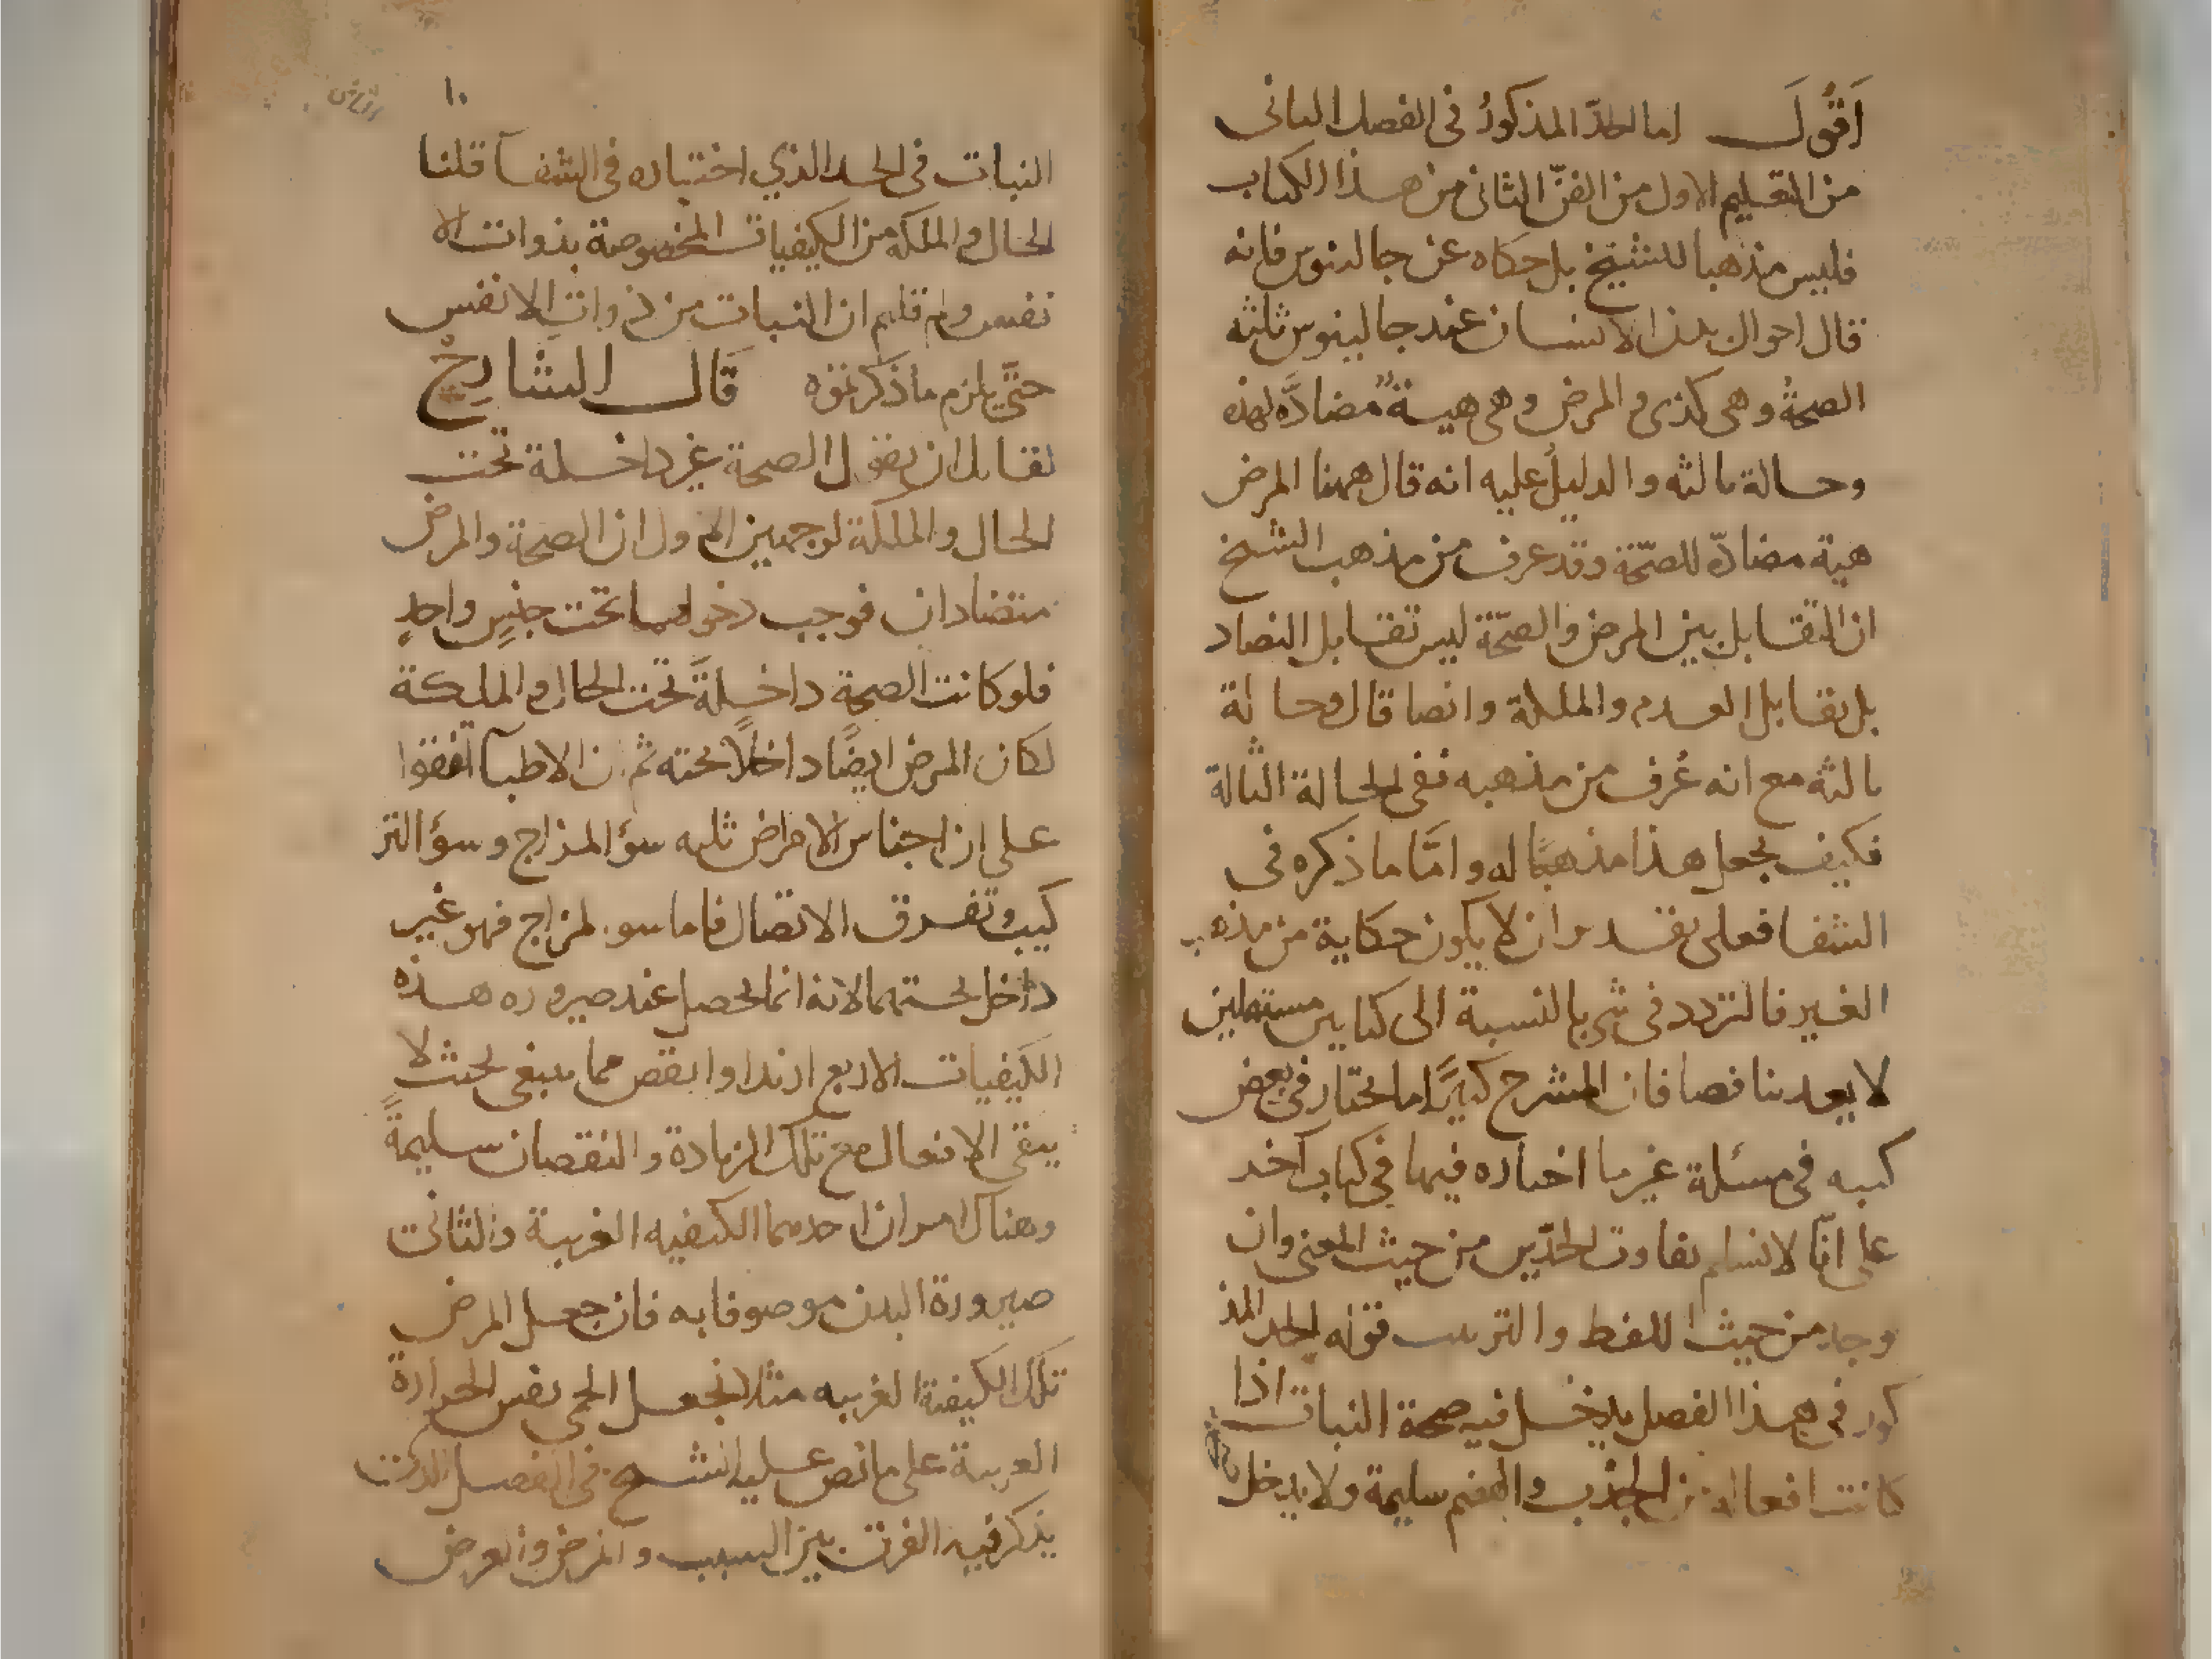 اَقُولَ اما الحدّ المذكورُ فى الفصل الثانى
من التعليم الاول من الفنّ الثانى من هذا الكتاب
فليس مذهبا للشيخ بل حكاه عن جالينوس فانه
قال احوال بدن الانسان عند جالينوس ثلثه
الصحةُ وهى كذى والمرض وهى هيئةٌ مُضادَّه لهذه
وحالة ثالثه والدليلُ عليه انه قال ههنا المرض
هيئة مضادّه للصحّة وقد عرف من مذهب الشيخ
ان التقابل بين المرض والصحّة ليس تقابل التضاد
بل تقابل العدم والملكة وايضا قال وحالة
ثالثه مع انه عُرف من مذهبه نفى الحالة الثالثة
فكيف يجعل هذا مذهبًا له وامّا ما ذكره فى
الشفا فعلى تقدير ان لا يكون حكاية من مذهب
الغير فالتردد فى شى بالنسبة الى كتابين مستقلين
لا يعد مناقصا فان المشرح كثيرًا ما يختار فى بعض
كتبه فى مسئلة غير ما اختاره فيها فى كتاب آخر
على انّا لا نسلم تفاوت الحدّين من حيث المعنى وان
وجد من حيث اللفظ والترتيب قوله الحد المذ
كور فى هذا الفصل يدخل فيه صحة النبات اذا
كانت افعاله من الجذب والهضم سليمة ولا يدخل
١٠
النبات فى الحد الذي اختياره فى الشفآ قلنا
الحال والملكه من الكيفيات المخصوصة بذوات الا
نفس ولم قلتم ان النبات من ذوات الانفس
حتَّى يلزم ما ذكرتموه قَالَ الشارِحُ
لقائل ان يقول الصحة غير داخلة تحت
الحال والملكة لوجهين الاول ان الصحة والمرض
متضادان فوجب دخولهما تحت جنسٍ واحدٍ
فلو كانت الصحة داخلةً تحت الحال والملكة
لكان المرض ايضًا داخلًا تحته ثم ان الاطبآ اتفقوا
على ان اجناس الامراض ثلثه سوٴ المزاج وسوٴ التر
كيب وتفرق الاتصال فاما سوء المزاج فهو غير
داخل تحتهما لانه انما يحصل عند صيروره هذه
الكيفيات الاربع ازيد او انقص مما ينبغى بحيث لا
يبقى الافعال مع تلك الزيادة والنقصان سليمةً
وهناك امران احدهما الكيفيه الغريبة والثانى
صيرورة البدن موصوفا به فان جعل المرض
تلك الكيفية الغريبه مثلا نجعل الحمى نفس الحرارة
الغريبة على ما نص عليه الشيخ فى الفصل الذى
يذكر فيه الفرق بين السبب والمرض والعرض